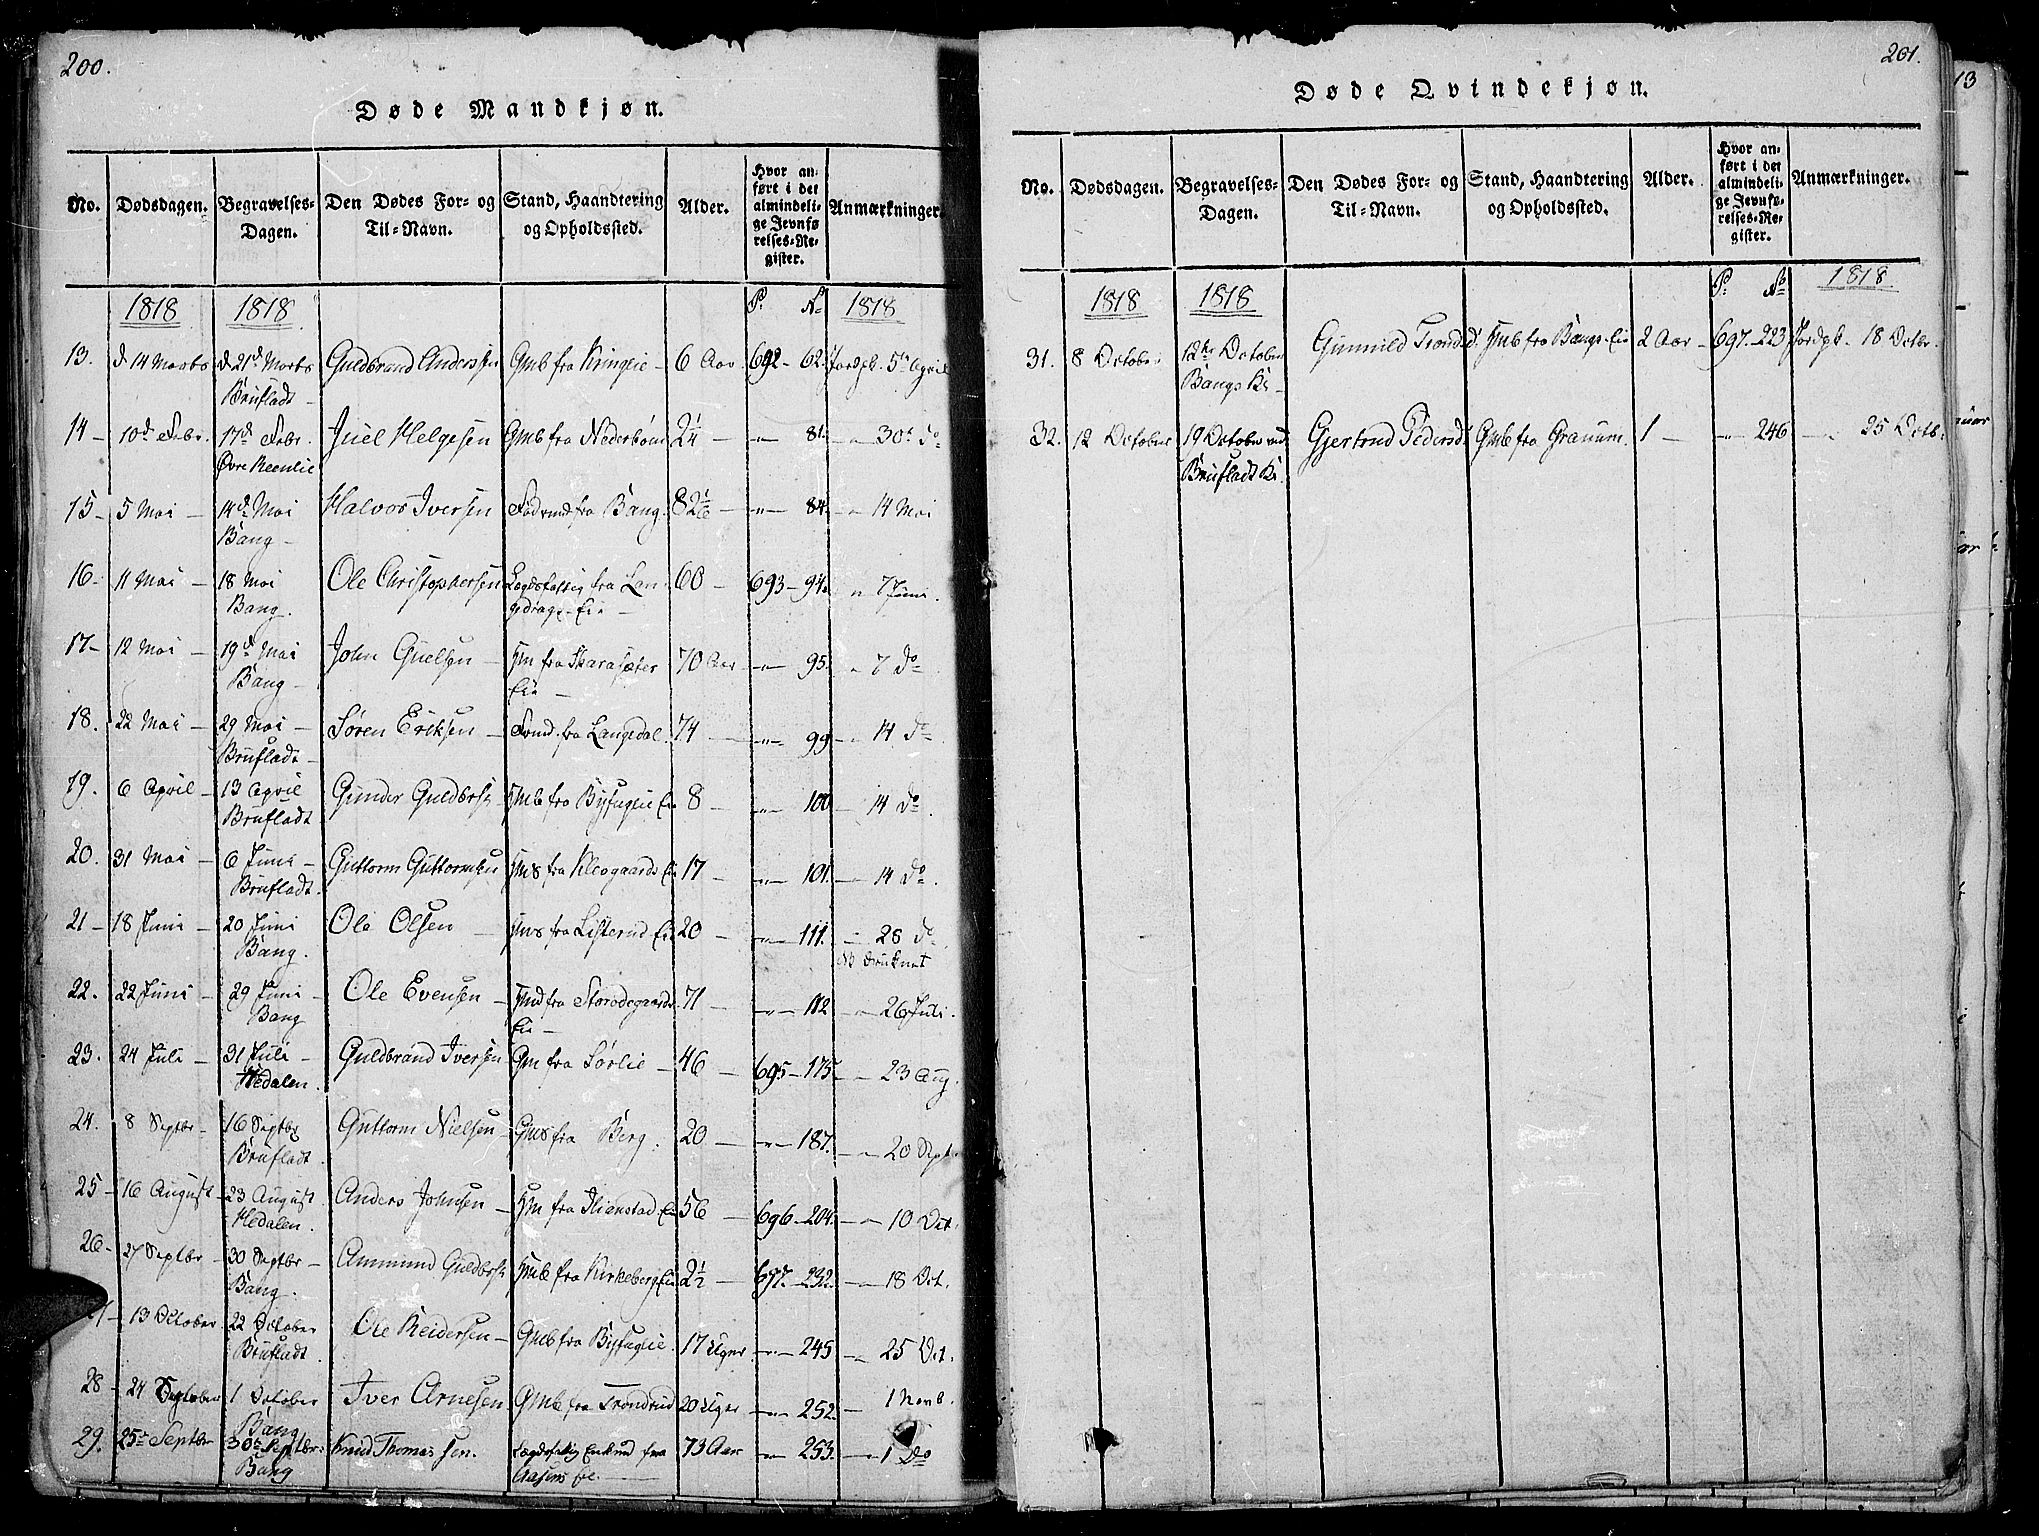 200.
Døde Mandkjøn.
No. Dødsdagen. Begravelses-Dagen. Den Dødes For- og Til-Navn. Stand, Haandtering og Opholdssted. Alder. Hvor anført i det almindelige Jevnførelses-Register. Anmærkninger.
1818 1818 P. No 1818
13. d 14 Marts d. 21d Marts Guldbrand Anderssen Gmb fra Kringlie 6 Aar. 692 - 62. Jordpk. 5te April
Brufladt
14 - 10d Febr. 17d Febr. Juel Helgesen Gmb fra Nederböen 2 1/4 - " - 81. - " 30t do
Øvre Reenlie
15 - 5 Mai - 14d Mai Halvor Iversen Födrmd fra Bang 82 1/6 - " - 84. - " 14 Mai
Bang -
16 - 11 Mai - 18 Mai Ole Christophersen Legdsfattig fra Lan- 60 - 693 - 94. " 7 Juni.
Bang. gedrags-Eie -
17 - 12 Mai 19d Mai John Guelsen - Hm fra Skarasæter 70 Aar - " - 95. " 7 do
Bang - Eie -
18. 22 Mai - 29 Mai - Søren Ericksen - Frmd. fra Langedal 74 - " - 99 - " 14 do
Brufladt -
19. 6 April - 13 April Gunder Guldbrs: Hmb fra Byfuglie Eie 8 - " - 100 - 14 do.
Brufladt
20. 31 Mai - 6 Juni - Guttorm Guttormsen Hms fra Klevgaards Eie 17 - " - 101. - 14 do.
Brufladt.
21 - 18 Juni - 20 Juni Ole Olsen - Hms fra Listerud Eie 20 - " - 111. - 28 do.
Bang. NB druknet
22. 22 Juni - 29 Juni - Ole Evensen - Hmd fra Storødegaards 71 - " - 112 - " 26 Juli.
Bang Eie -
23. 24 Juli - 31 Juli - Guldbrand Iversen Gm fra Sørlie - 46 - 695 - 175 - 23 Aug.
Hedalen.
24. 8 Septbr - 16 Septbr Guttorm Nielsen - Gms fra Berg. 20 - " - 187. - " 20 Sept.
Brufladt.
25 - 16 August - 23 August Anders Johnsen - Hm fra Ilienstad Eie 56 - 696 - 204. - " 10 Oct.
Hedalen.
26 - 27 Septbr - 30 Septbr - Ammund Guldbrs: Hmb fra Kirkeberg Eie 2 1/2 - 697. - 232. - " 18 Oct.
Bang.
- 13 October 22 October Ole Reidersen - Gmb fra Byfuglie. 17 Uger - " - 245 - " 25 Oct.
Brufladt.
28 - 24 September 1 October Iver Arnesen Gmb fra Trondrud 20 Uger - " - 252. - 1 Novb.
Bang
29. 25d Septbr 30te Septbr. Knud Thomassen. Lægdsfattig Enkmd fra 73 Aar - " - 253. - " 1 Do
Bang Aasens Eie.
201.
Døde Qvindekjøn.
No. Dødsdagen. Begravelses-Dagen. Den Dødes For- og Til-Navn. Stand, Haandtering og Opholdssted. Alder. Hvor anført i det almindelige Jevnførelses-Register. Anmærkninger.
1818 1818 P. No 1818
31. 8 October 12te October Gunnild Tronds d. Hmb fra Bangs-Eie 2 Aar - 697. - 223 Jordpk - 18 Octbr.
Bangs Ki -
32. 12 October 19 October ved Gjertrud Pedersd. Gmb fra Granum. 1 - " - 246 - " 25 Octb:
Brufladt Ki
13